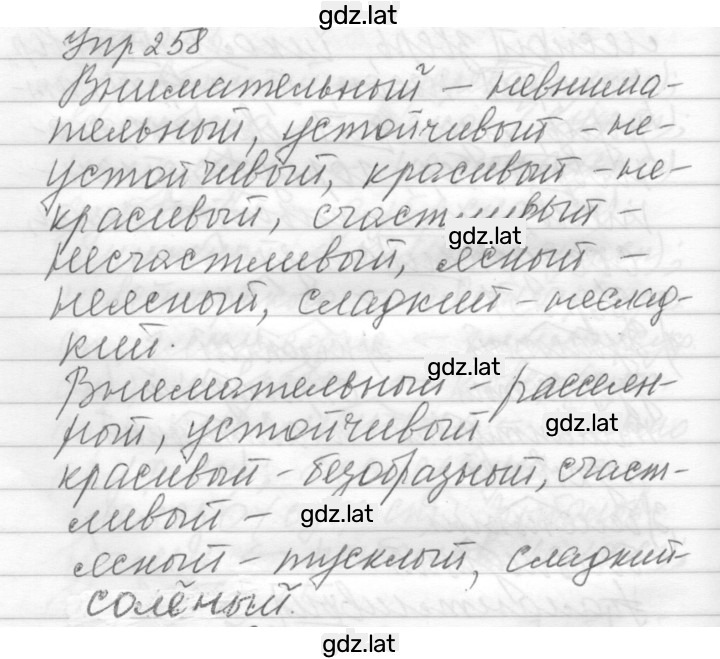 gdz.lat
Упр 258
Внимательный – невнима-
тельный, устойчивый – не-
устойчивый, красивый – не-
красивый, счастливый –
gdz.lat
несчастливый, ясный –
неясный, сладкий – неслад-
кий.
gdz.lat
Внимательный – рассеян-
ный, устойчивый
gdz.lat
красивый – безобразный, счаст-
ливый –
gdz.lat
ясный – тусклый, сладкий-
солёный.
gdz.lat